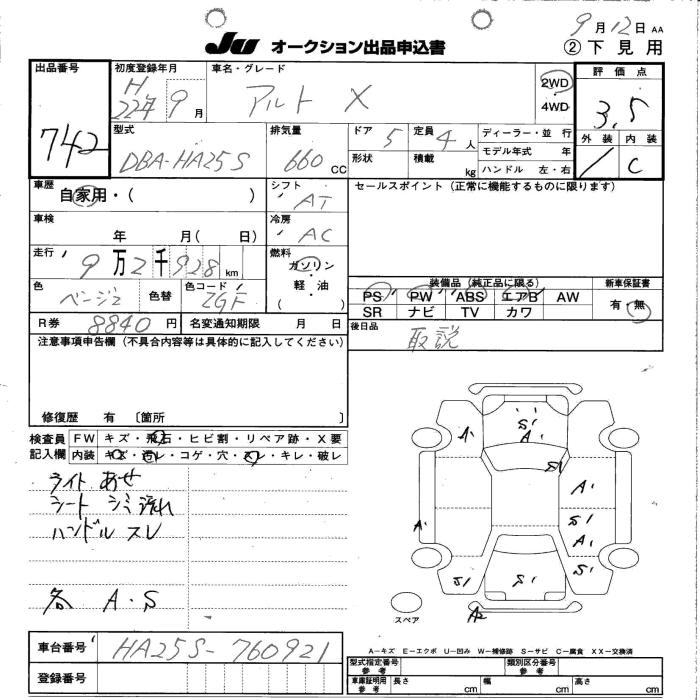 9月12日 AA
JU オークション出品申込書 ② 下見用
出品番号 742
初度登録年月 H 22年 9月
車名・グレード アルト X
2WD・4WD
評価点 3.5
外装 内装 C
型式 DBA-HA25S
排気量 660 CC
ドア 5
形状
定員 4人
積載 kg
ディーラー・並行
モデル年式 年
ハンドル 左・右
車歴 自家用・( )
シフト AT
セールスポイント(正常に機能するものに限ります)
車検 年 月( 日)
冷房 AC
走行 9万2千928 km
燃料 ガソリン・軽油 ( )
装備品(純正品に限る) 新車保証書
PS PW ABS エアB AW 有・無
SR ナビ TV カワ
色 ベージュ 色替 色コード ZGF
R券 8840円 名変通知期限 月 日
後日品 取説
注意事項申告欄(不具合内容等は具体的に記入してください)
修復歴 有 〔箇所 〕
検査員記入欄
FW キズ・飛石・ヒビ割・リペア跡・X要
内装 キズ・汚レ・コゲ・穴・スレ・キレ・破レ
ライト あせ
シート シミ 汚れ
ハンドル スレ
各 A・S
A1 S1 A1 S1 A1 S1 A1 A1 S1 S1 S1 A2
スペア
A-キズ E-エクボ U-凹み W-補修跡 S-サビ C-腐食 XX-交換済
車台番号 HA25S-760921
登録番号
型式指定番号 参考 類別区分番号 参考
車庫証明用 参考 長さ cm 幅 cm 高さ cm